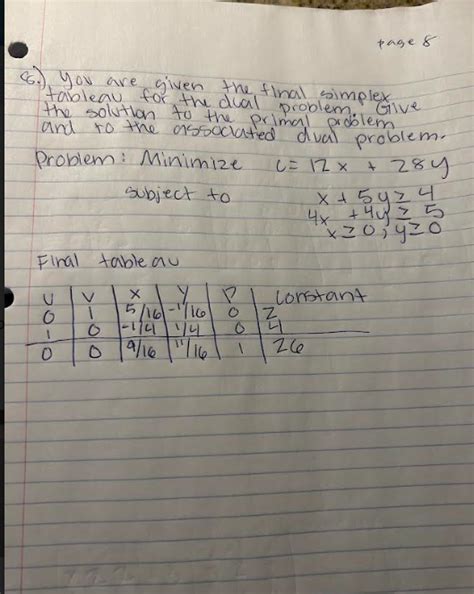 page 8
86.) You are given the final simplex
tableau for the dual problem. Give
the solution to the primal problem
and to the associated dual problem.
Problem: Minimize C = 12x + 28y
subject to x + 5y ≥ 4
4x + 4y ≥ 5
x ≥ 0, y ≥ 0
Final tableau
U V X Y P Constant
0 1 5/16 -1/16 0 2
1 0 -1/4 1/4 0 4
0 0 9/16 11/16 1 26